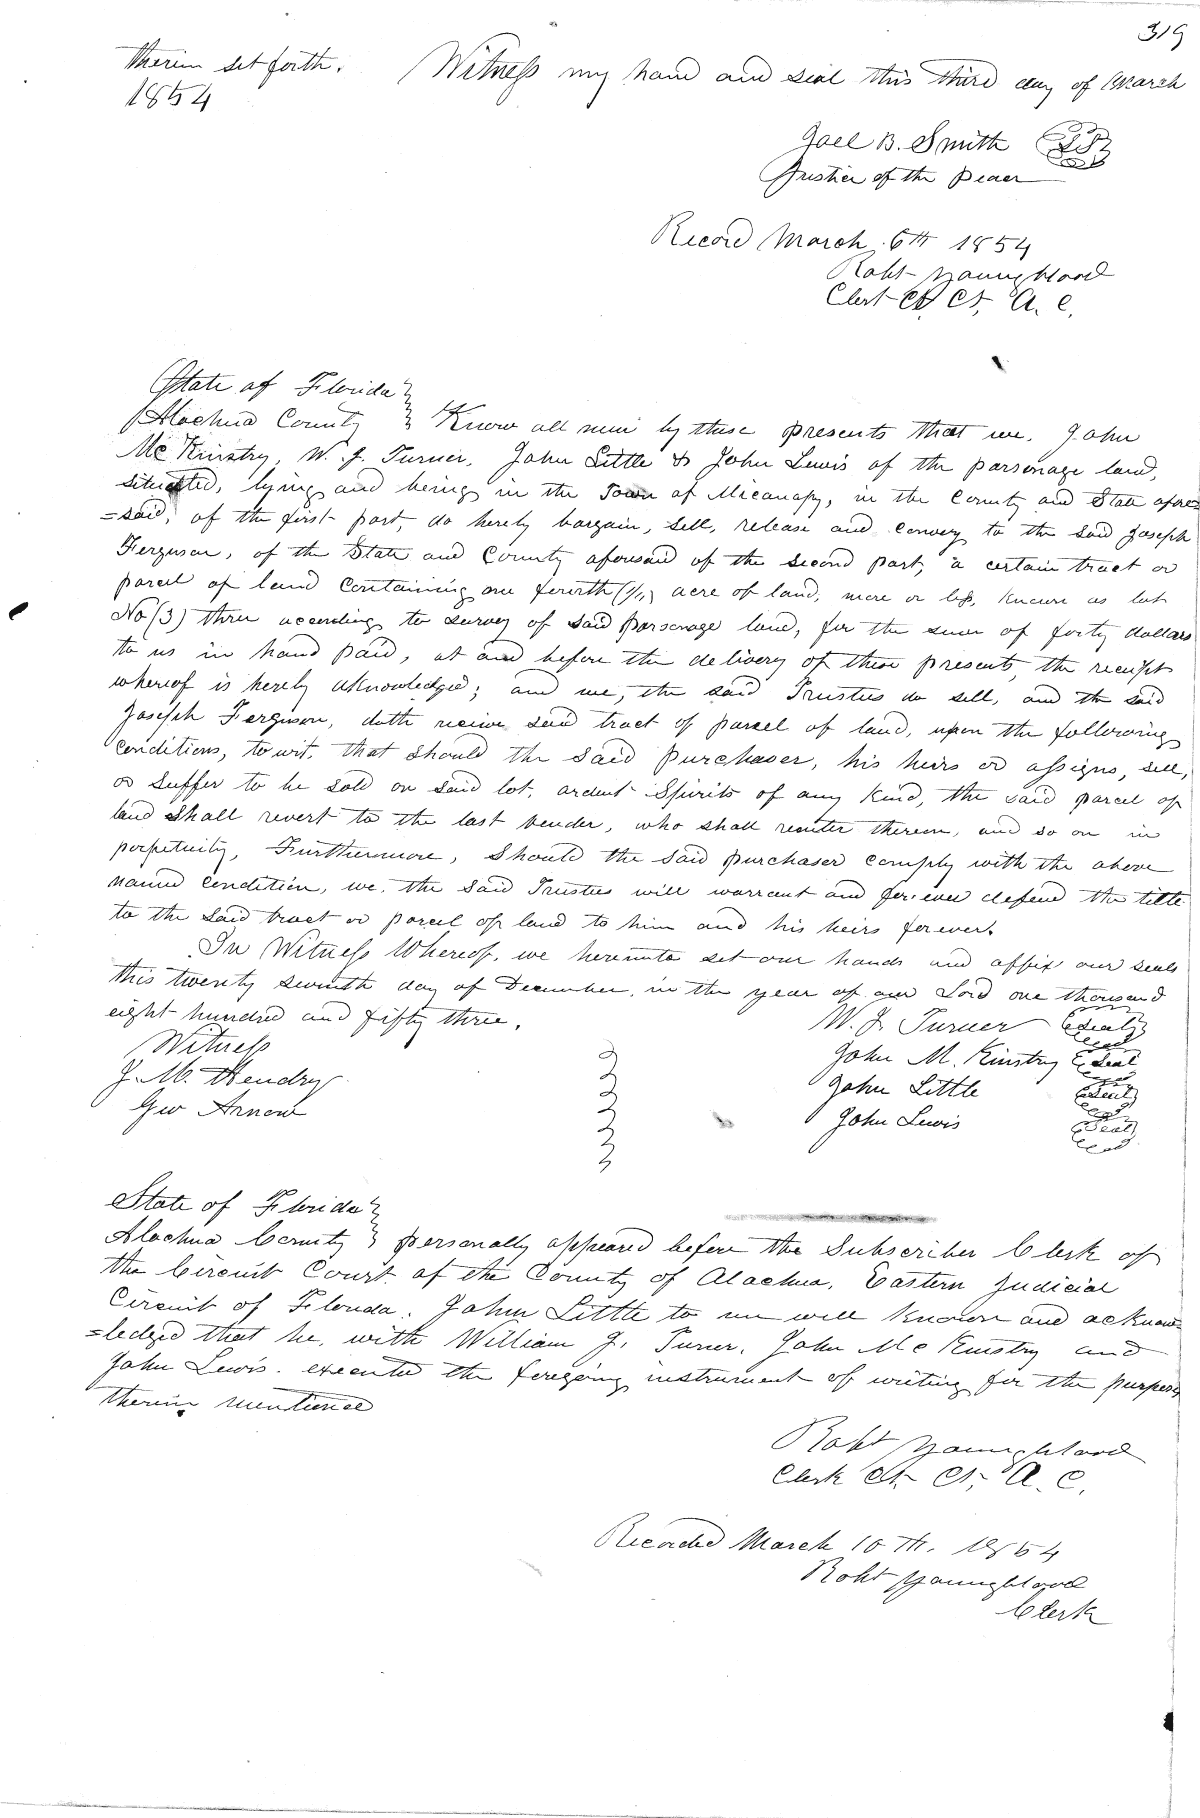 319
therein set forth. Witness my hand and seal this third day of March
1854
Joel B. Smith
Justice of the Peace
Record March 6th 1854
Robt Youngblood
Clerk Ct Ct, A. C.
State of Florida
Alachua County Know all men by these presents that we, John
Mc Kinstry, W. J. Turner, John Little & John Lewis of the parsonage land,
situated, lying and being in the Town of Micanopy, in the County and State afore=
=said, of the first part, do hereby bargain, sell, release and convey to the said Joseph
Ferguson, of the State and County aforesaid of the second part, a certain tract or
parcel of land Containing one fourth (1/4) acre of land, more or less, known as lot
No (3) three according to survey of said parsonage land, for the sum of forty dollars
to us in hand paid, at and before the delivery of these presents, the receipt
whereof is hereby aknowledged; and we, the said Trustees do sell, and the said
Joseph Ferguson, doth receive said tract of parcel of land, upon the following
Conditions, towit, that should the said purchaser, his heirs or assigns, sell,
or suffer to be sold on said lot, ardent Spirits of any kind, the said parcel of
land shall revert to the last vender, who shall reenter thereon, and so on in
perpetuity, Furthermore, should the said purchaser comply with the above
named condition, we, the said Trustees will warrant and forever defend the title
to the said tract or parcel of land to him and his heirs forever.
In Witness Whereof, we hereunto set our hands and affix our seals
this twenty seventh day of December, in the year of our Lord one thousand
eight hundred and fifty three.
W. J. Turner Seal
Witness
John M. Kinstry Seal
J. M. Hendry
John Little Seal
Geo Arnow
John Lewis Seal
State of Florida
Alachua County personally appeared before the Subscriber Clerk of
the Circuit Court of the County of Alachua, Eastern Judicial
Circuit of Florida. John Little to me well known and acknow=
=ledged that he, with William J. Turner, John Mc Kinstry and
John Lewis. executed the foregoing instrument of writing for the purposes
therein mentioned
Robt Youngblood
Clerk Ct Ct, A. C.
Recorded March 10th, 1854
Robt Youngblood
Clerk